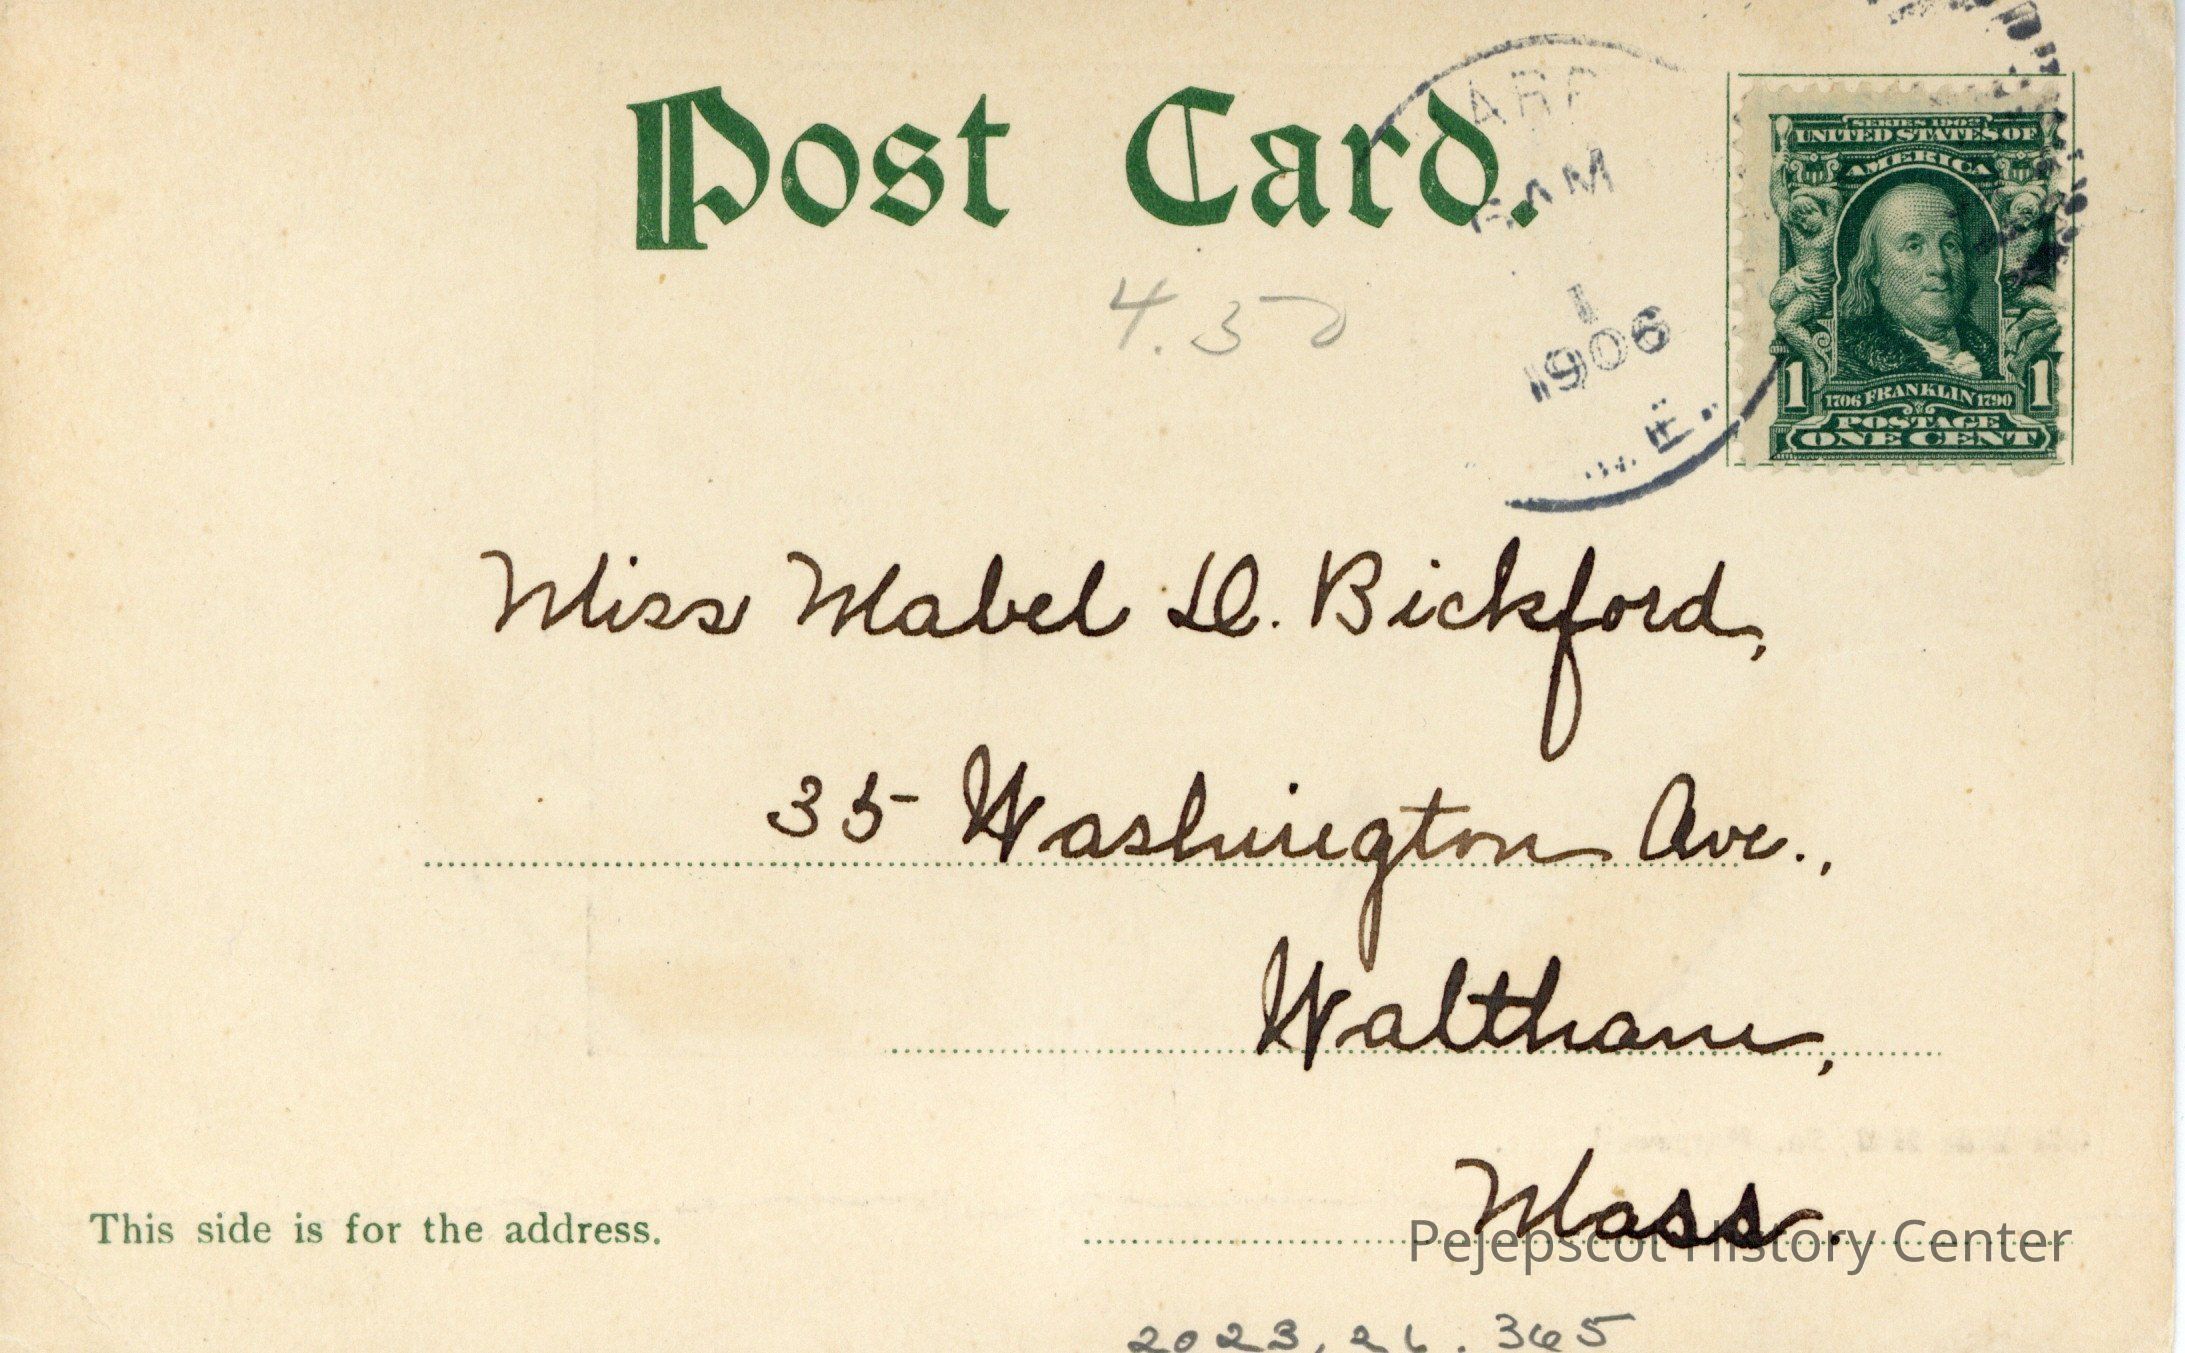 Post Card.
AM
1
1906
SERIES 1902
UNITED STATES OF
AMERICA
1 1706 FRANKLIN 1790 1
POSTAGE
ONE CENT
4.50
Miss Mabel D. Bickford,
35 Washington Ave.,
Waltham,
Mass.
This side is for the address.
Pejepscot History Center
2023.26.365